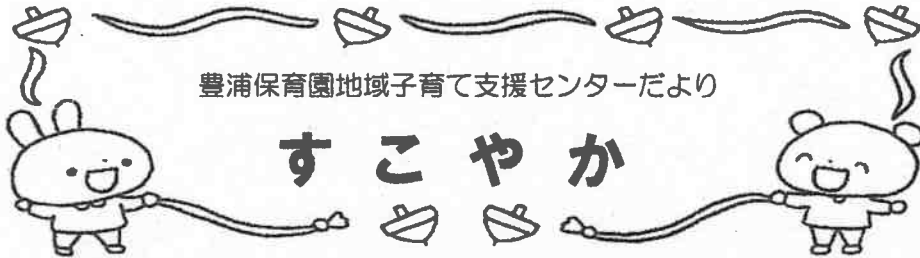 豊浦保育園地域子育て支援センターだより
すこやか